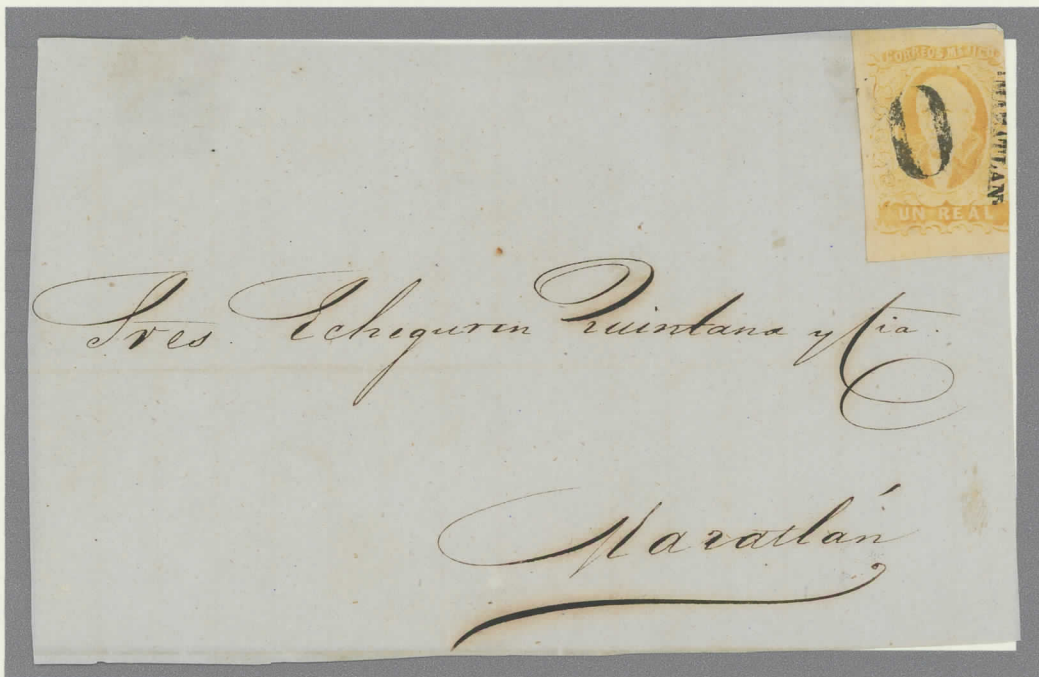 CORREOS MEJICO
MAZATLAN
0
UN REAL
Sres. Echeguren Quintana y Cia.
Mazatlán